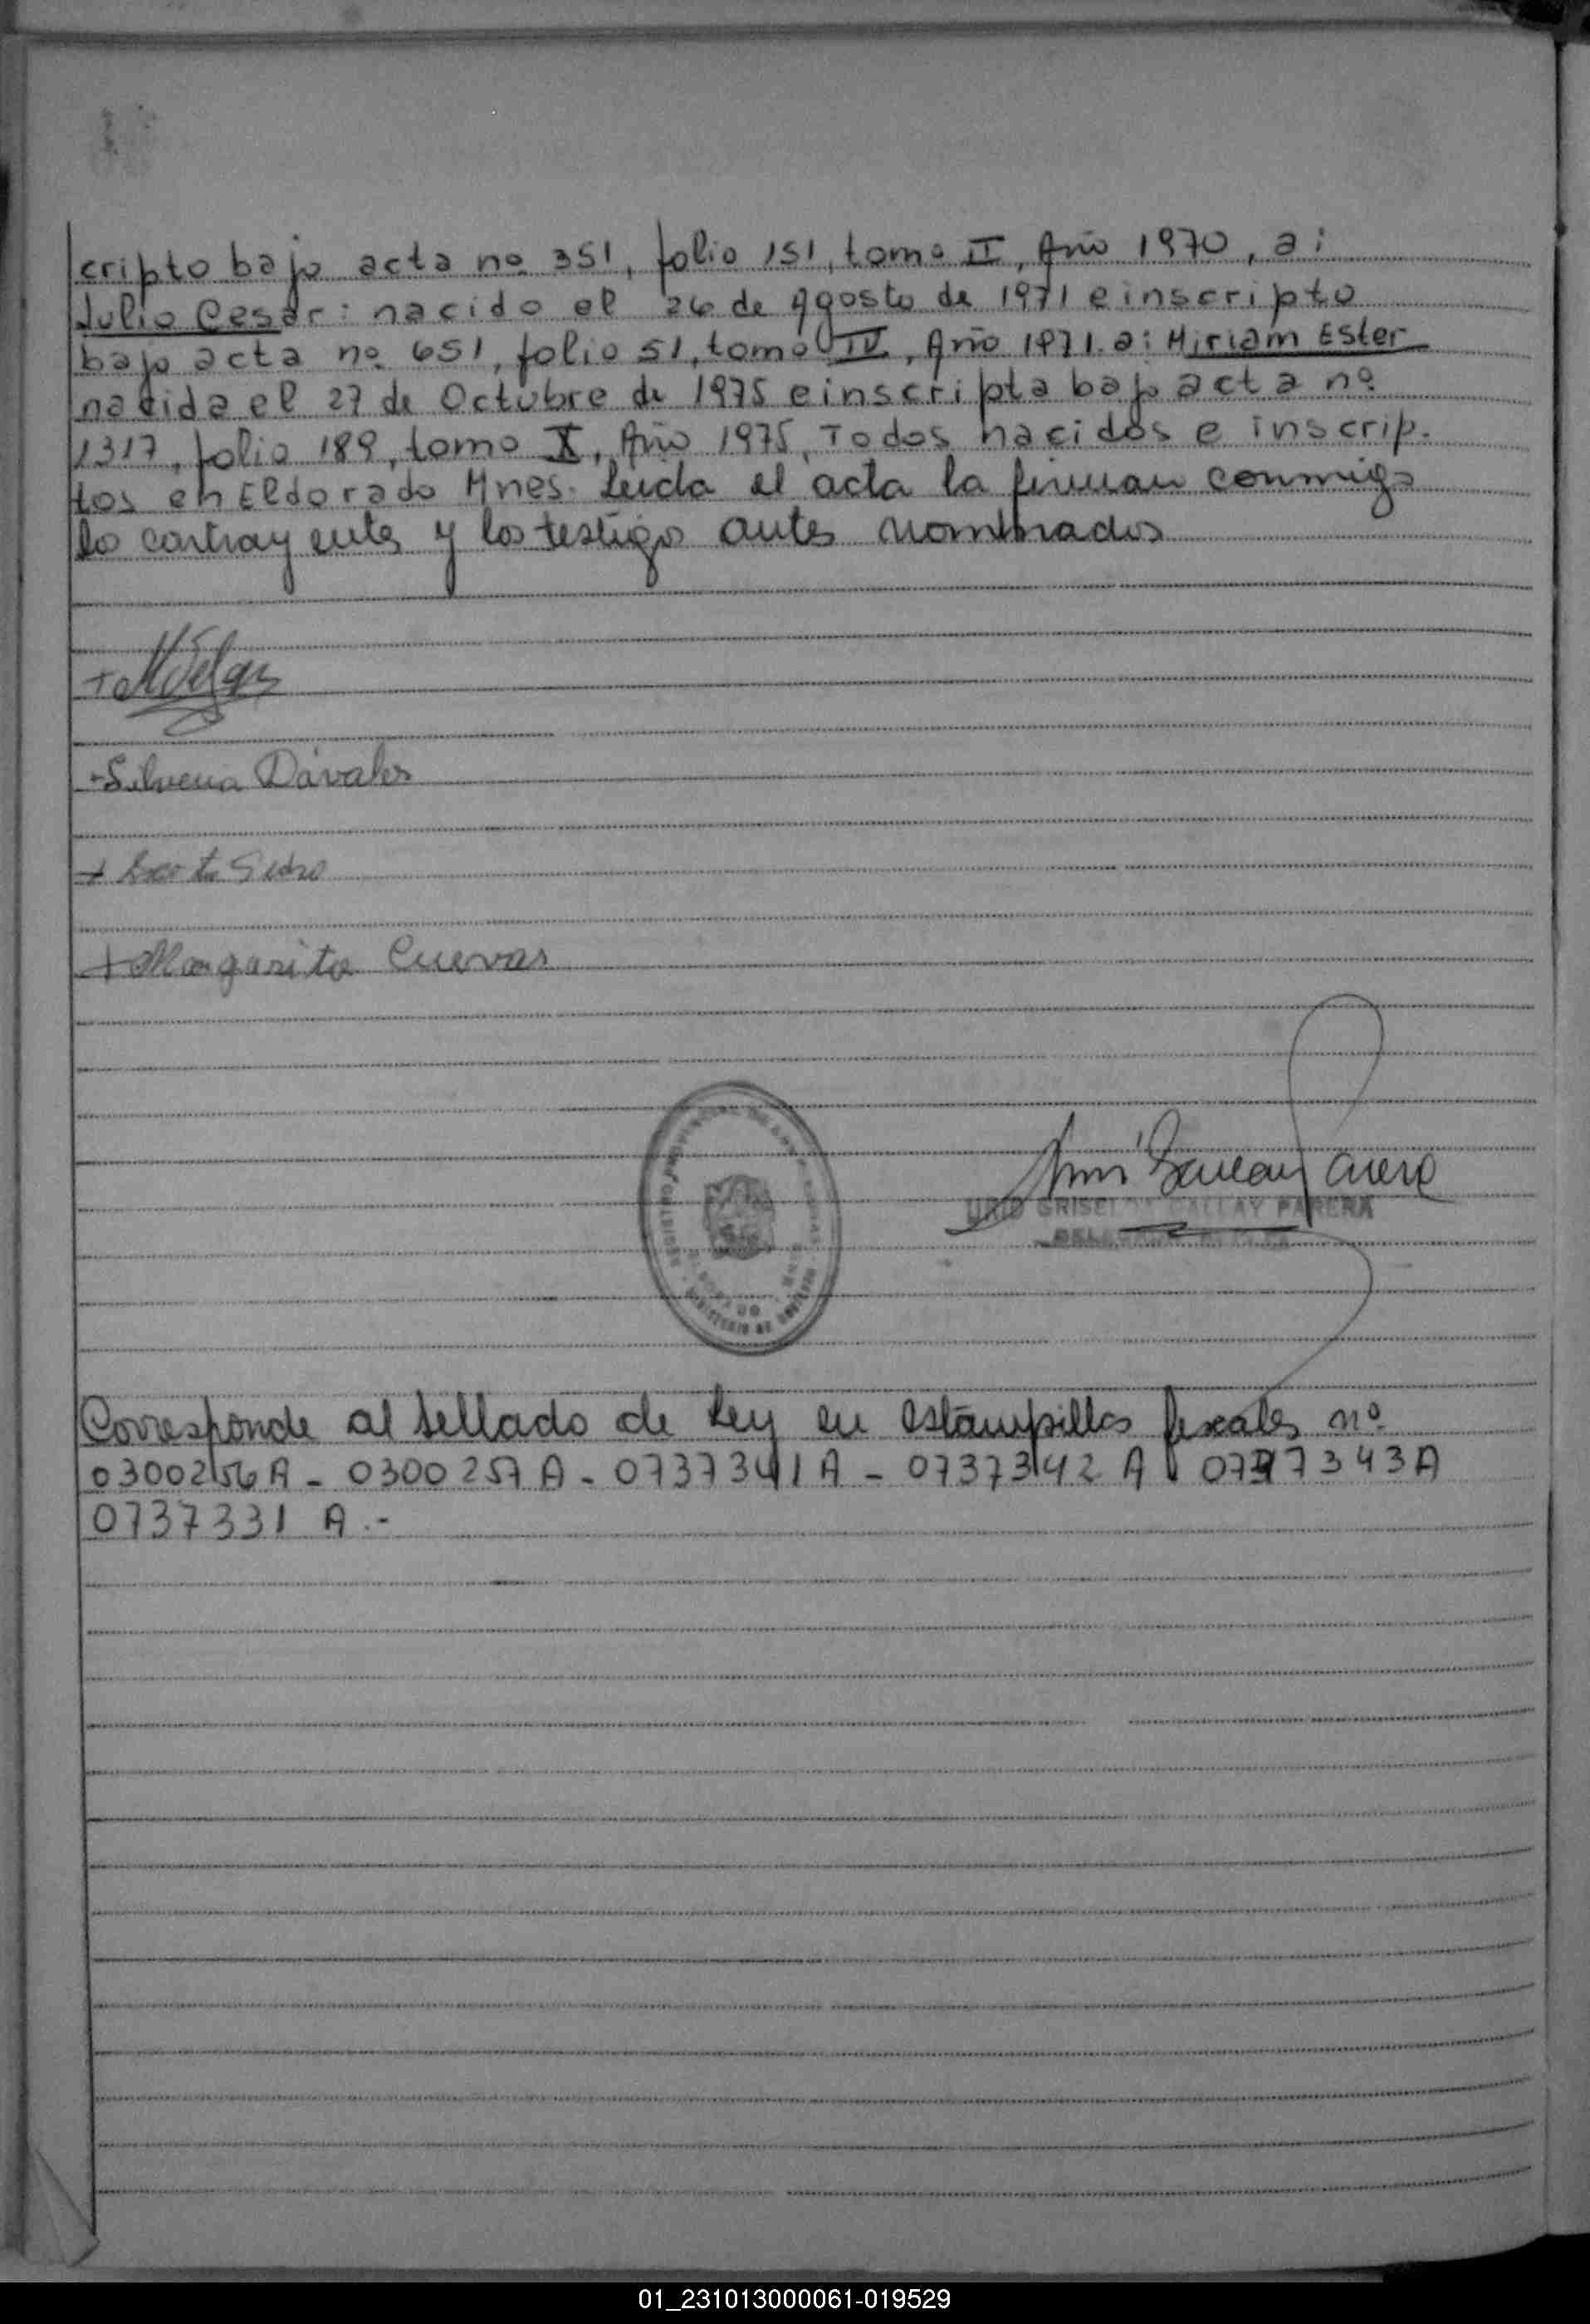 cripto bajo acta nº 351, folio 151, tomo II, Año 1970, a:
Julio Cesar: nacido el 26 de Agosto de 1971 e inscripto
bajo acta nº 651, folio 51, tomo IV, Año 1971. a: Miriam Ester
nacida el 27 de Octubre de 1975 e inscripta bajo acta nº
1317, folio 189, tomo X, Año 1975, Todos nacidos e inscrip.
tos en Eldorado Mnes. Leida el acta la firman conmigo
lo contrayentes y los testigo antes nombrados
Silveria Dávalos
+ Margarita Cuevas
GRISELDA GALLAY PARERA
Corresponde al sellado de Ley en estampillas fiscales nº
0300256 A - 0300257 A - 0737341 A - 0737342 A 0737343 A
0737331 A.-
01_231013000061-019529